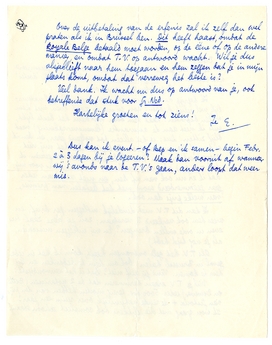 Over de uitbetaling van de erfenis zal ik zelf dan wel
praten als ik in Brussel ben. Dit heeft haast, omdat de
Royale Belge betaald moet worden, op de ene of op de andere
manier, en omdat T.V. op antwoord wacht. Wil je dus
alsjeblieft naar hem toegaan en hem zeggen dat je in mijn
plaats komt, omdat dat verreweg het beste is?
Veel dank. Ik wacht nu dus op antwoord van je, ook
betreffende dat stuk voor
Hartelijke groeten en tot ziens!
Je E.
Dus kan ik event. - of Kep en ik samen - begin Febr.
2 à 3 dagen bij je logeren? Maak dan vooruit af wanneer
wij 's avonds naar de T.V.'s gaan, anders loopt dat weer
mis.